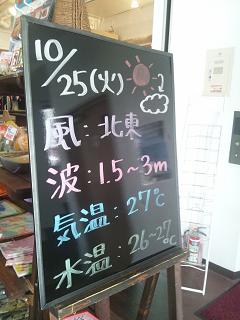 10/25(火)
風:北東
波:1.5~3m
気温:27℃
水温:26~27℃